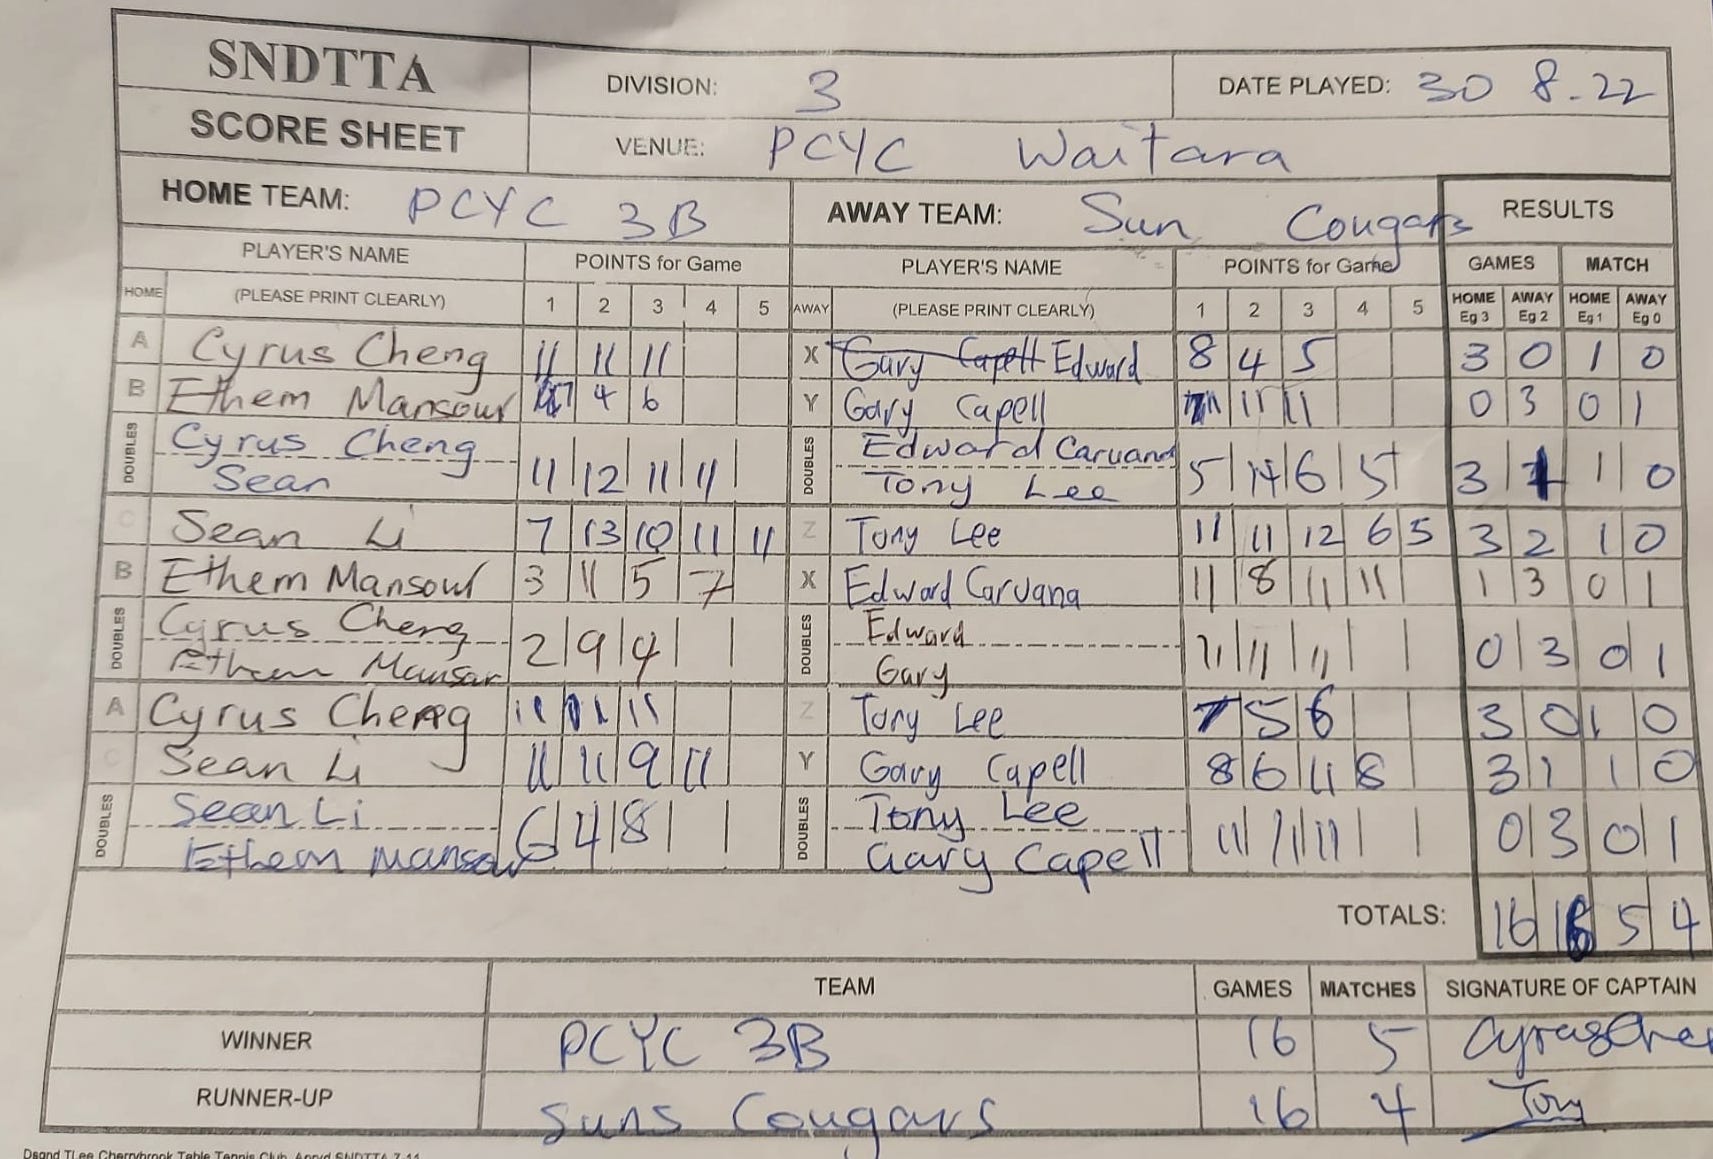 SNDTTA DIVISION: 3 DATE PLAYED: 30 8.22
SCORE SHEET VENUE: PCYC Waitara
HOME TEAM: PCYC 3B AWAY TEAM: Sun Cougars RESULTS
PLAYER'S NAME POINTS for Game PLAYER'S NAME POINTS for Game GAMES MATCH
HOME (PLEASE PRINT CLEARLY) 1 2 3 4 5 AWAY (PLEASE PRINT CLEARLY) 1 2 3 4 5 HOME Eg 3 AWAY Eg 2 HOME Eg 1 AWAY Eg 0
A Cyrus Cheng 11 11 11 X Gary Capell Edward 8 4 5 3 0 1 0
B Ethem Mansour 7 4 6 Y Gary Capell 11 11 11 0 3 0 1
DOUBLES Cyrus Cheng DOUBLES Edward Caruana
Sean 11 12 11 11 Tony Lee 5 14 6 5 3 1 1 0
C Sean Li 7 13 10 11 11 Z Tony Lee 11 11 12 6 5 3 2 1 0
B Ethem Mansour 3 11 5 7 X Edward Caruana 11 8 11 11 1 3 0 1
DOUBLES Cyrus Cheng DOUBLES Edward
Ethem Mansar 2 9 4 Gary 11 11 11 0 3 0 1
A Cyrus Cheng 11 11 11 Z Tony Lee 7 5 6 3 0 1 0
C Sean Li 11 11 9 11 Y Gary Capell 8 6 11 8 3 1 1 0
DOUBLES Sean Li DOUBLES Tony Lee
Ethem Mansour 6 4 8 Gary Capell 11 11 11 0 3 0 1
TOTALS: 16 16 5 4
TEAM GAMES MATCHES SIGNATURE OF CAPTAIN
WINNER PCYC 3B 16 5 Cyrus Che
RUNNER-UP Suns Cougars 16 4 Tony
Dsgnd TLee Cherrybrook Table Tennis Club